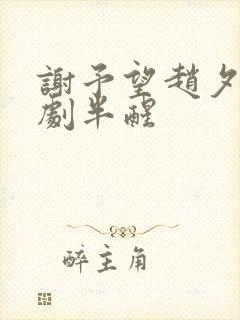 謝予望趙夕
劇半醒
醉主角